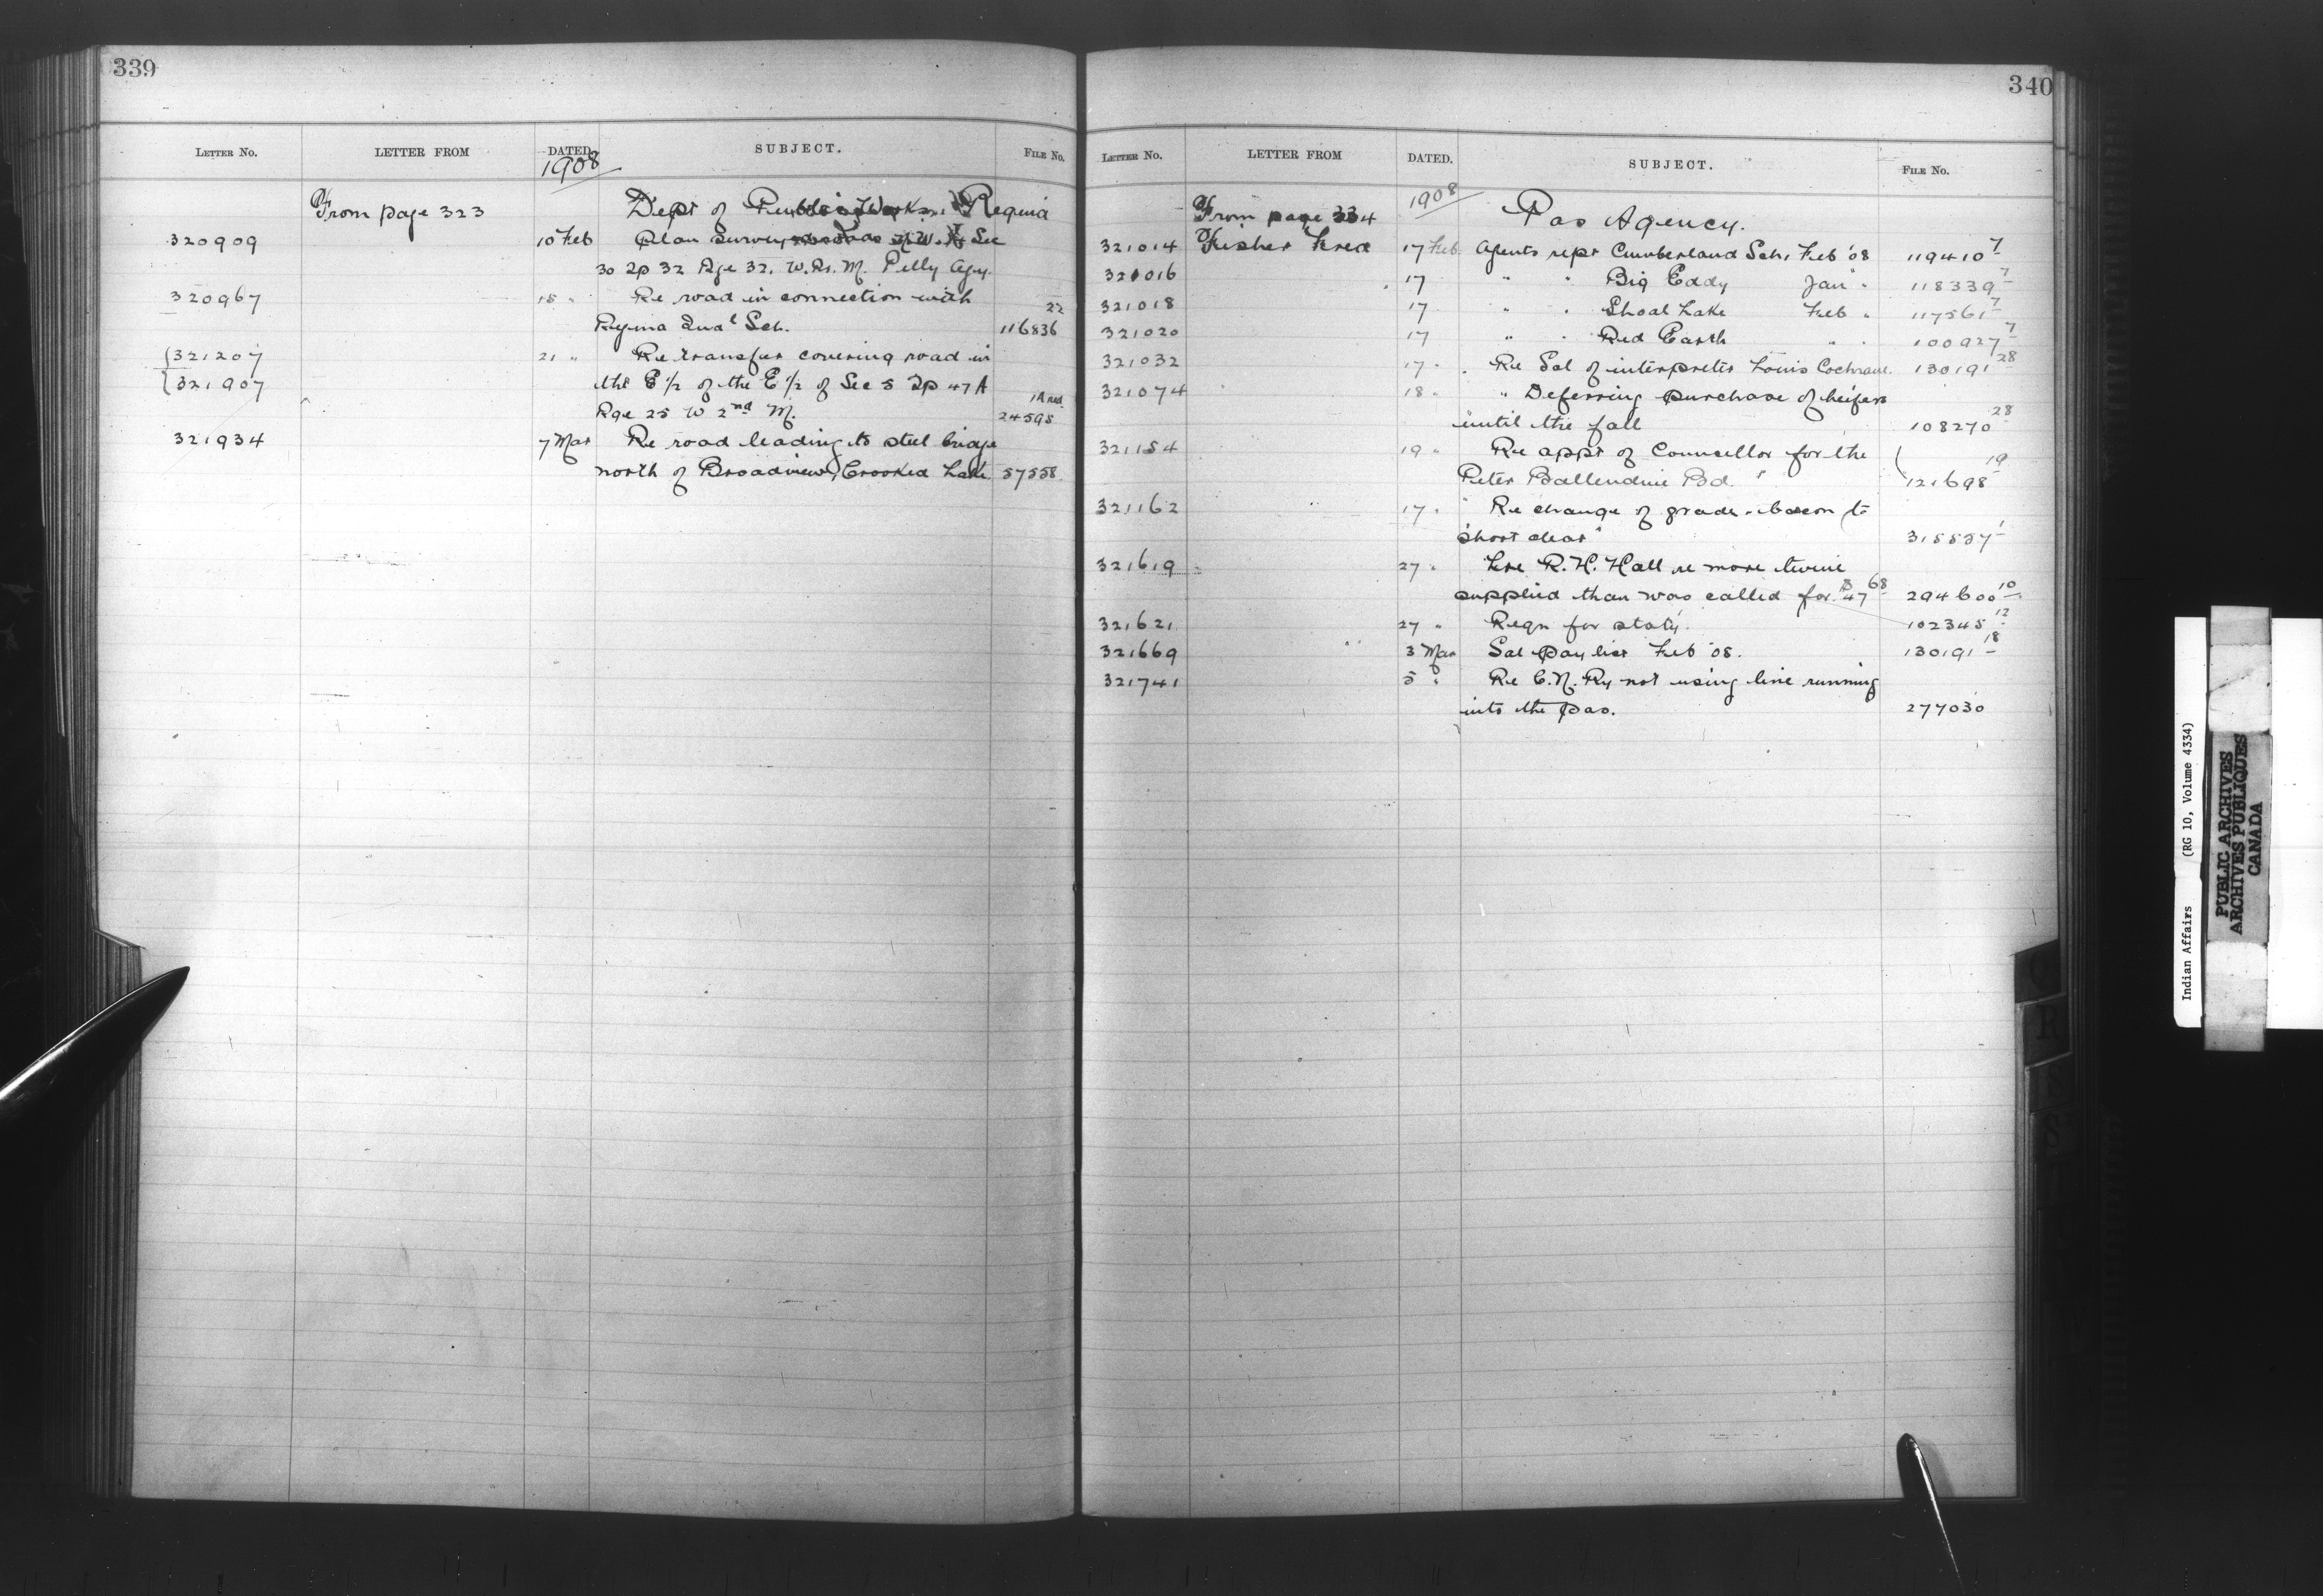 339
LETTER No. LETTER FROM DATED. SUBJECT. FILE No.
1908
From page 323 Dept of Public Works, Regina
320909 10 Feb Plan survey N.W. 1/4 Sec
30 Tp 32 Rge 32. W. Pr. M. Pelly Agy.
320967 18 " Re road in connection with
Regina Indl Sch. 116836 22
321207 21 " Re transfer covering road in
321907 the E 1/2 of the E 1/2 of Sec 5 Tp 47 A
Rge 25 W 2nd M. 24595
321934 7 Mar Re road leading to steel bridge
north of Broadview, Crooked Lake. 57558
340
LETTER No. LETTER FROM DATED. SUBJECT. FILE No.
1908
From page 334 Pas Agency.
321014 Fisher Fred 17 Feb. Agents rept Cumberland Sch, Feb '08 119410 7
321016 17 " " Big Eddy Jan " 118339 7
321018 17 " " Shoal Lake Feb " 117561 7
321020 17 " " Red Earth " " 100927 7
321032 17 " Re Sal of interpreter Louis Cochrane. 130191 28
321074 18 " " Deferring purchase of heifers
until the fall 108270 28
321154 19 " Re appt of Councellor for the
Peter Ballendine Bd. 121698 19
321162 17 " Re change of grade bacon to
"short clear" 315557 1
321619 27 " R. H. Hall re more twine
supplied than was called for. $47 68 294600 10
321621 27 " Reqn for staty. 102345 12
321669 3 Mar Sal Pay list Feb '08. 130191 18
321741 5 " Re C.N. Ry not using line running
into the Pas. 277030
Indian Affairs (RG 10, Volume 4334)
PUBLIC ARCHIVES
ARCHIVES PUBLIQUES
CANADA